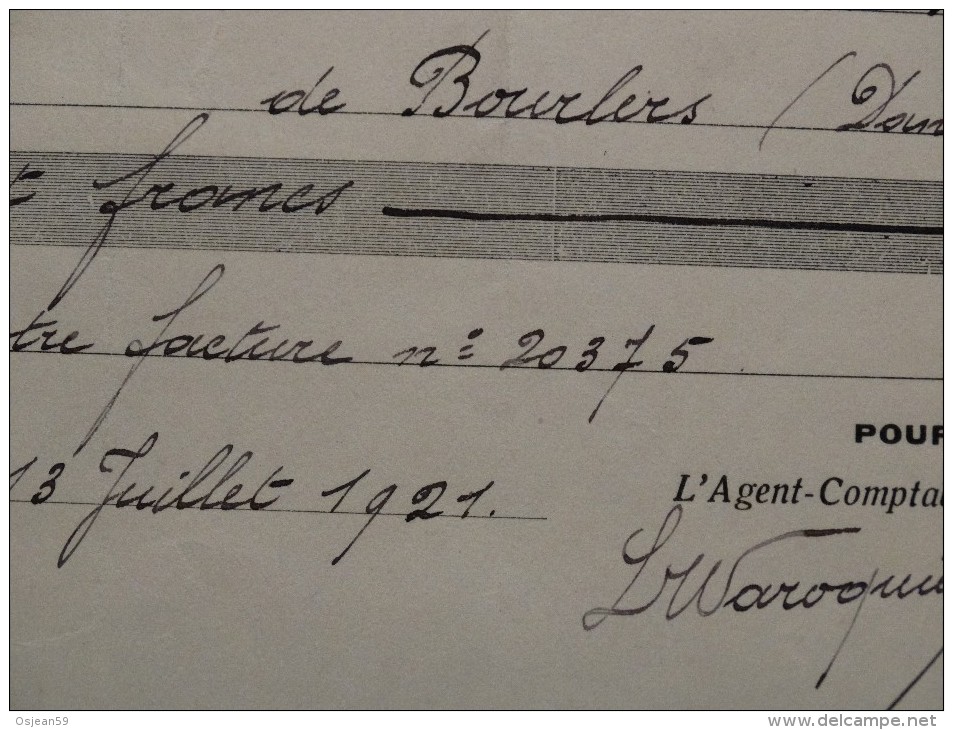 de Bourlers (Dan
t francs
tre facture n° 20375
13 Juillet 1921.
POUR
L'Agent-Compta
Waroqui
Osjean59
delcampe.net